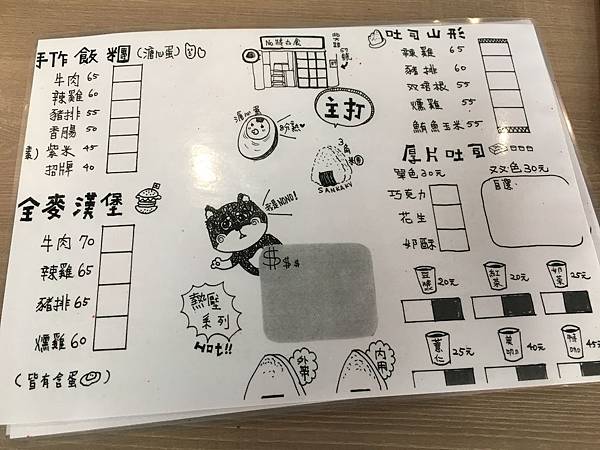 手作飯糰(溏心蛋)
牛肉 65
辣雞 60
豬排 55
香腸 50
素) 紫米 45
招牌 40
全麥漢堡
牛肉 70
辣雞 65
豬排 65
燻雞 60
(皆有含蛋)
溏心蛋
主打
3角飯糰
SANKAKU
我是NONO!
$$$
熱壓系列
Hot!!
外帶
內用
吐司山形
辣雞 65
豬排 60
双培根 55
燻雞 55
鮪魚玉米 55
厚片吐司
單色30元
双色30元
自選:
巧克力
花生
奶酥
豆漿 20元
紅茶 20元
奶茶 25元
薏仁 25元
40元
45元